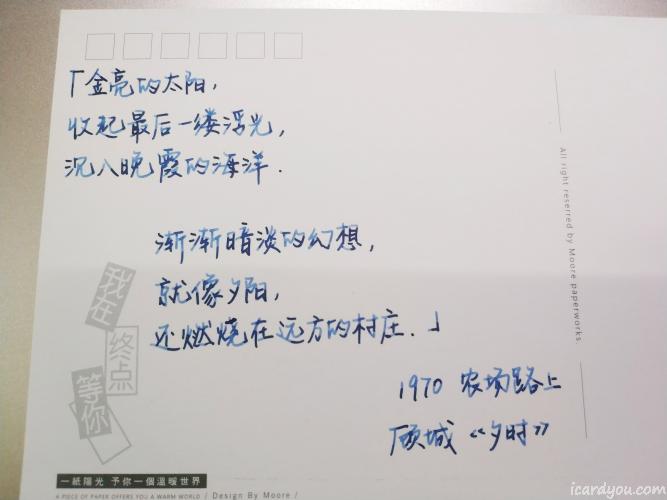 「金亮的太阳，
收起最后一缕浮光，
沉入晚霞的海洋．
渐渐暗淡的幻想，
就像夕阳，
还燃烧在远方的村庄．」
1970 农场路上
顾城《夕时》
我在
终点
等你
一紙陽光 予你一個溫暖世界
A PIECE OF PAPER OFFERS YOU A WARM WORLD / Design By Moore /
All right reserred by Moore paperworks.
icardyou.com